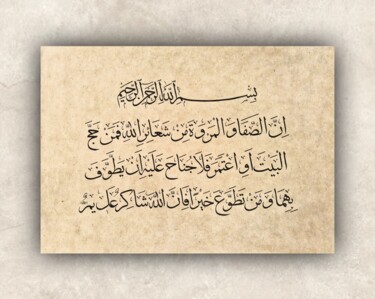 بسم الله الرحمن الرحيم
إن الصفا و المروة من شعائر الله فمن حج
البيت أو اعتمر فلا جناح عليه أن يطوف
بهما و من تطوع خيرا فإن الله شاكر عليم